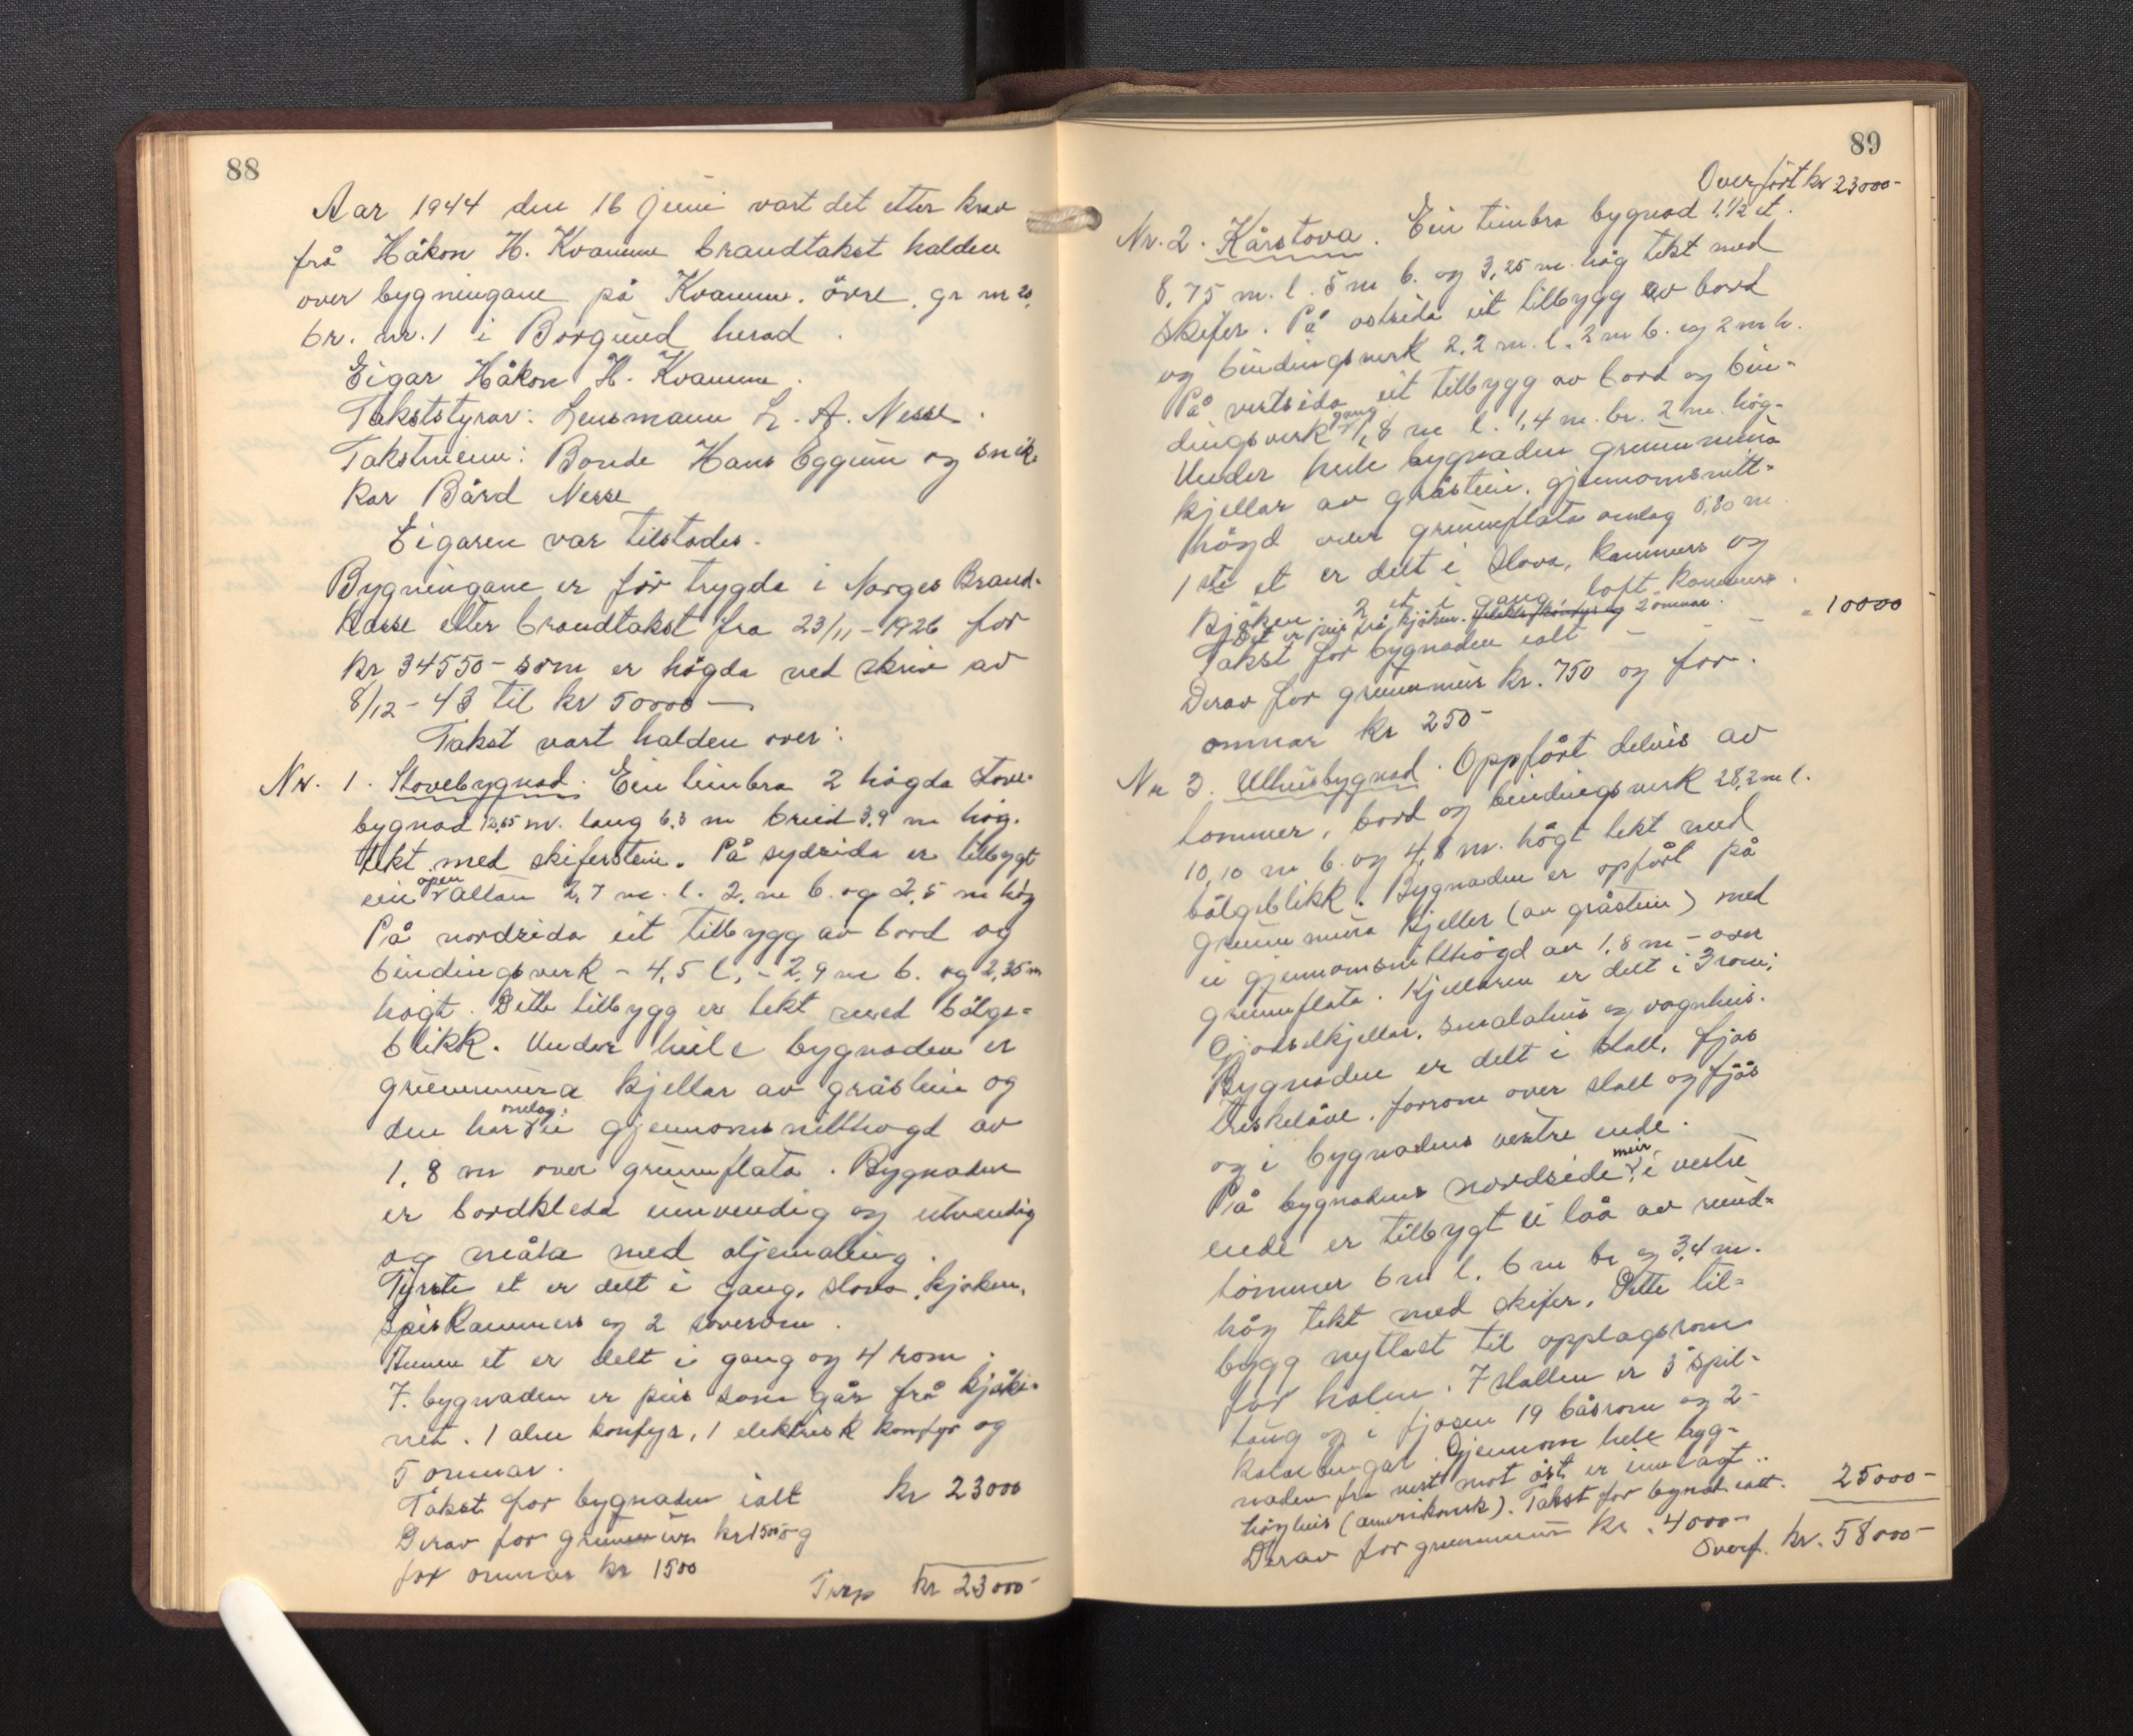 88
Aar 1944 den 16 juni vart det etter krav
frå Håkon H. Kvamme brandtakst halden
over bygningane på Kvamme, övre, gr nr 20,
br. nr. 1 i Borgund herad.
Eigar Håkon H. Kvamme.
Takststyrar: Lensmann L. A. Nesse.
Takstmenn: Bonde Hans Eggum og snik-
kar Bård Nesse
Eigaren var tilstades.
Bygningane er för trygda i Norges Brand-
kasse etter brandtakst fra 23/11-1926 for
kr 34550- som er högda ved skriv av
8/12-43 til kr 50000-
Takst vart halden over:
Nr. 1. Stovebygnad. Ein timbra 2 högda stove-
bygnad 12,65 m. lang 6.3 m breid 3,9 m hög.
tekt med skiferstein. På sydsida er tilbygt
ein open altan 2,7 m. l. 2. m b. og 2,5 m hög
På nordsida eit tilbygg av bord og
bindingsverk - 4,5 l, - 2,9 m b. og 2,35 m
högt. Dette tilbygg er tekt med bölge-
blikk. Under heile bygnaden er
grunnmura kjellar av gråstein og
den har omlag ei gjennomsnitthögd av
1,8 m over grunnflata. Bygnaden
er bordkledd innvendig og utvendig
og måla med oljemaling.
Fyrste et er delt i gang, stova, kjöken,
spiskammers og 2 soverom.
Annen et er delt i gang og 4 rom.
I bygnaden er peis som går frå kjöke-
net. 1 alm konfyr, 1 elektrisk konfyr og
5 omnar.
Takst for bygnaden ialt kr 23000
Derav for grunnmur kr 1500 og
for omnar kr 1500
Tvsp kr 23000-
89
Overfört kr 23000-
Nr. 2. Kårstova. Ein timbra bygnad 1 1/2 et.
8,75 m. l. 5 m b. og 3,25 m. hög tekt med
skifer. På ostsida eit tilbygg av bord
og bindingsverk 2,2 m. l. 2 m b. og 2 m h.
På vestsida eit tilbygg av bord og bin-
dingsverk gang 1,8 m l. 1,4 m. br. 2 m. hög.
Under heile bygnaden grunnmura
kjellar av gråstein, gjennomsnitt-
högd over grunnflata omlag 0,80 m.
1ste et er delt i stova, kammers og
kjöken. 2 et i gang, loft kammers.
Det er peis frå kjöken. 2 omnar.
Takst for bygnaden ialt - - - 10000
Derav for grunnmur kr. 750 og for
omnar kr 250-
Nr 3. Ulhusbygnad. Oppfört delvis av
tommer, bord og bindingsverk 28,2 m l.
10,10 m b. og 4,8 m. högt tekt med
bölgeblikk. Bygnaden er opfört på
grunnmura kjeller (av gråstein) med
ei gjennomsnitthögd av 1,8 m - over
grunnflata. Kjellaren er delt i 3 rom,
Gjödselkjellar, smalahus og vognhus.
Bygnaden er delt i stall, fjös
treskelåve, forrom over stall og fjös
og i bygnadens vestre ende.
På bygnadens nordside meir i vestre
ende er tilbygt ei löa av rund-
tömmer 6 m l. 6 m br og 3,4 m.
hög tekt med skifer. Dette til-
bygg nyttast til opplagsrom
for halm. I stallen er 3 spil-
taug og i fjosen 19 båsrom og 2-
kalvebingar. Gjennom hele byg-
naden fra vest mot öst er innlagt
höyheis (amerikansk). Takst for bygnd. ialt. 25000-
Derav for grunnmur kr. 4000-
Overf. kr. 58000-